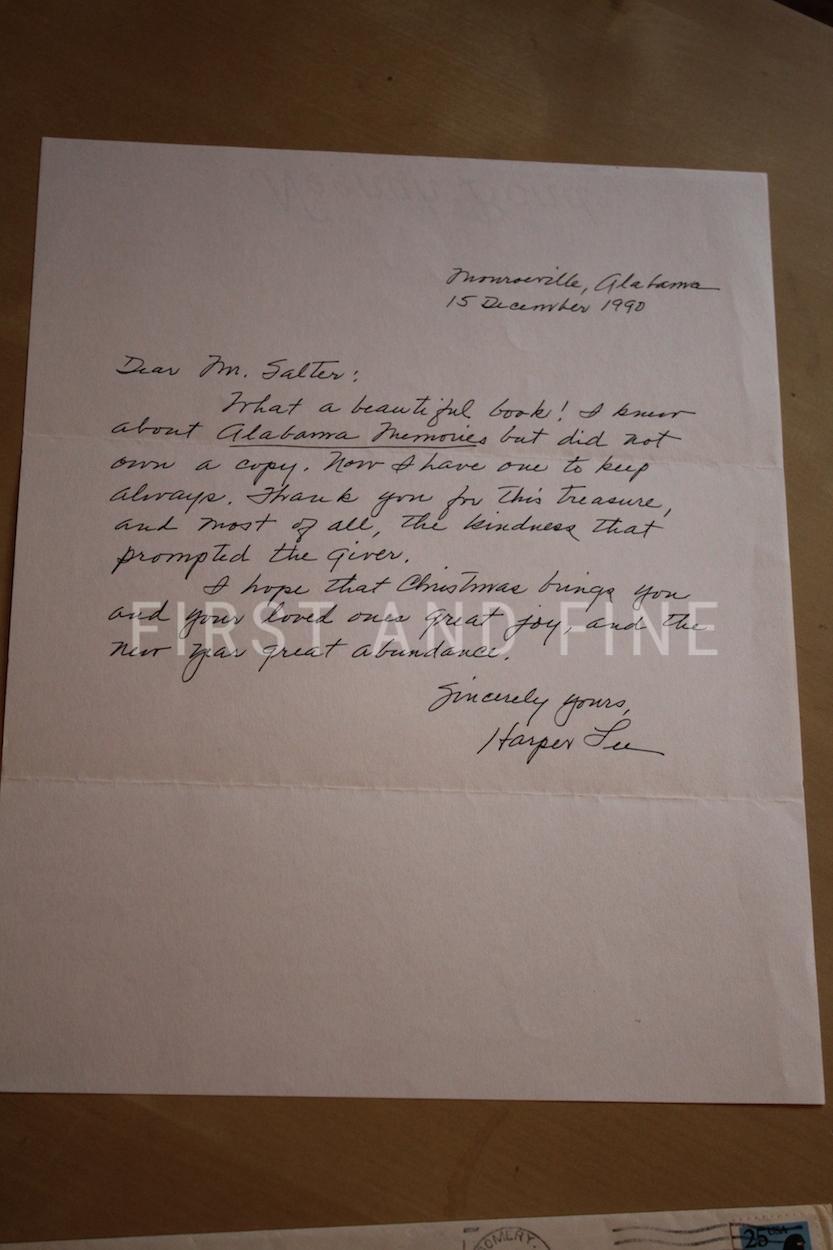 Monroeville, Alabama
15 December 1990
Dear Mr. Salter:
What a beautiful book! I knew
about Alabama Memories but did not
own a copy. Now I have one to keep
always. Thank you for this treasure,
and most of all, the kindness that
prompted the giver.
I hope that Christmas brings you
and your loved ones great joy, and the
new year great abundance.
FIRST AND FINE
Sincerely yours,
Harper Lee
OMERY
25 USA